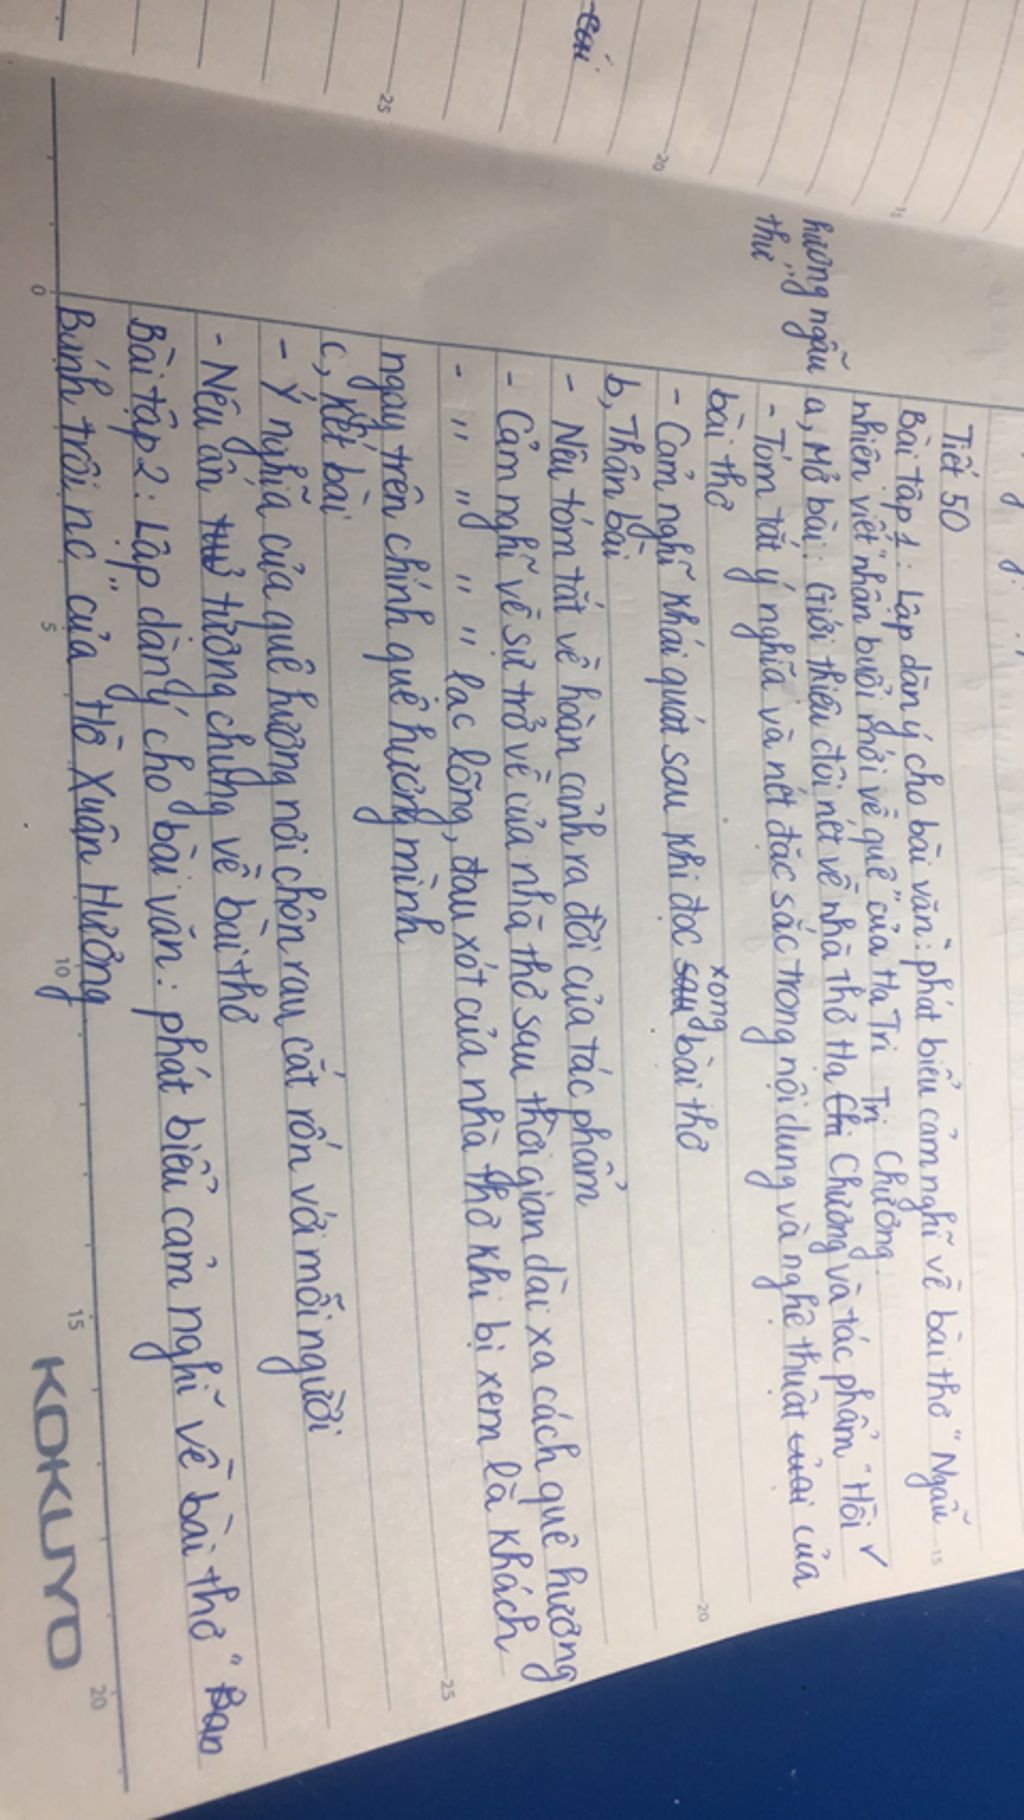 Tiết 50
Bài tập 1: Lập dàn ý cho bài văn: phát biểu cảm nghĩ về bài thơ "Ngẫu
nhiên viết nhân buổi mới về quê" của Hạ Tri Chương
a, Mở bài: Giới thiệu đôi nét về nhà thơ Hạ Chi Tri Chương và tác phẩm "Hồi
hương ngẫu thư"
- Tóm tắt ý nghĩa và nét đặc sắc trong nội dung và nghệ thuật của
bài thơ
- Cảm nghĩ khái quát sau khi đọc sau xong bài thơ
b, Thân bài
- Nêu tóm tắt về hoàn cảnh ra đời của tác phẩm
- Cảm nghĩ về sự trở về của nhà thơ sau thời gian dài xa cách quê hương
- " " " " lạc lõng, đau xót của nhà thơ khi bị xem là khách
ngay trên chính quê hương mình
c, Kết bài
- Ý nghĩa của quê hương nơi chôn rau, cắt rốn với mỗi người
- Nêu ấn thơ tượng chung về bài thơ
Bài tập 2: Lập dàn ý cho bài văn: phát biểu cảm nghĩ về bài thơ "Ban
Bánh trôi nc" của Hồ Xuân Hương
KOKUYO
0
5
10
15
20
15
20
25
20
25